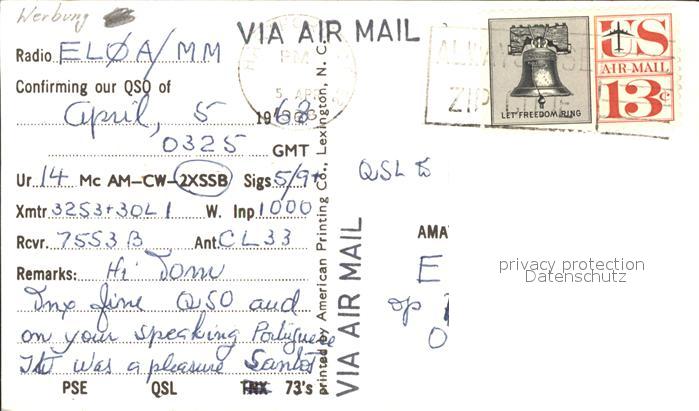 Werbung
VIA AIR MAIL
Radio ELØA/MM
Confirming our QSO of
April, 5 1968
0325 GMT
Ur 14 Mc AM-CW-2XSSB Sigs 5/9+
Xmtr 32S3+30L1 W. Inp 1000
Rcvr. 75S3B Ant CL33
Remarks: Hi Tom
Tnx fine QSO and
on your speaking Portuguese
It was a pleasure
PSE QSL TNX 73's
printed by American Printing Co., Lexington, N. C.
VIA AIR MAIL
PM
5 APR
ZIP
LET FREEDOM RING
US
AIR MAIL
13c
QSL
AMA
E
op
O
privacy protection
Datenschutz